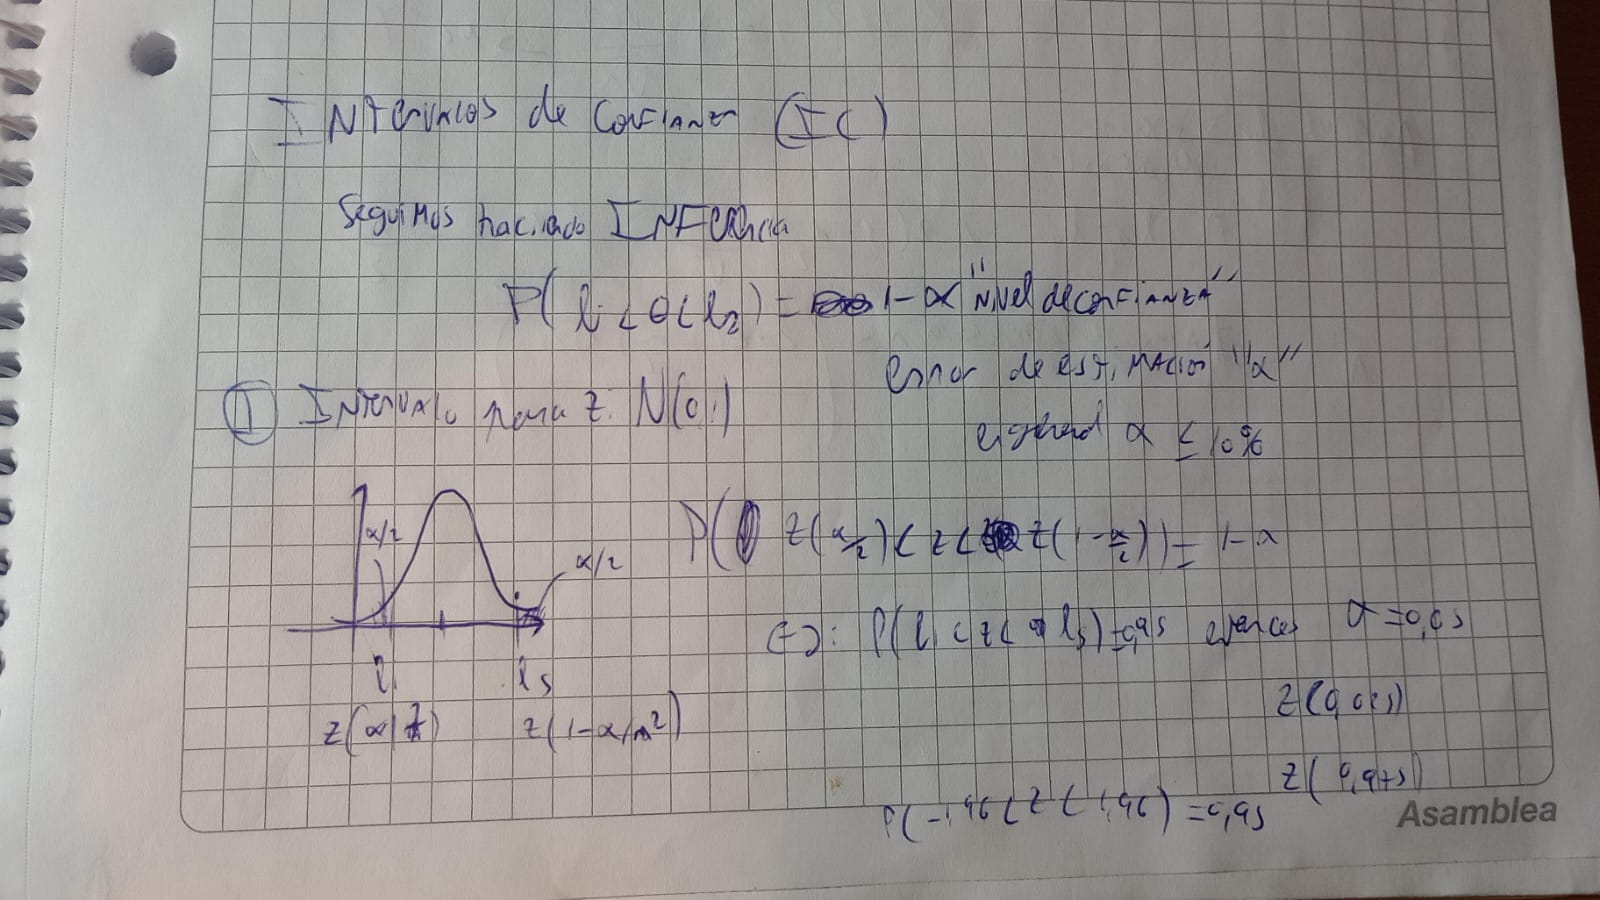 INtervalos de Confianza (IC)
Seguimos haciendo INFERencia
P( li < θ < l2 ) = 1-α "Nivel de confianza"
error de estimación "α"
α ≤ 10%
I Intervalo para z: N(0,1)
α/2
α/2
P( z(α/2) < z < z(1-α/2) ) = 1-α
Ej: P( li < z < ls ) = 0,95 entonces α = 0,05
li
ls
z(α/2)
z(1-α/2)
z(0,025)
z(0,975)
P(-1,96 < z < 1,96) = 0,95
Asamblea